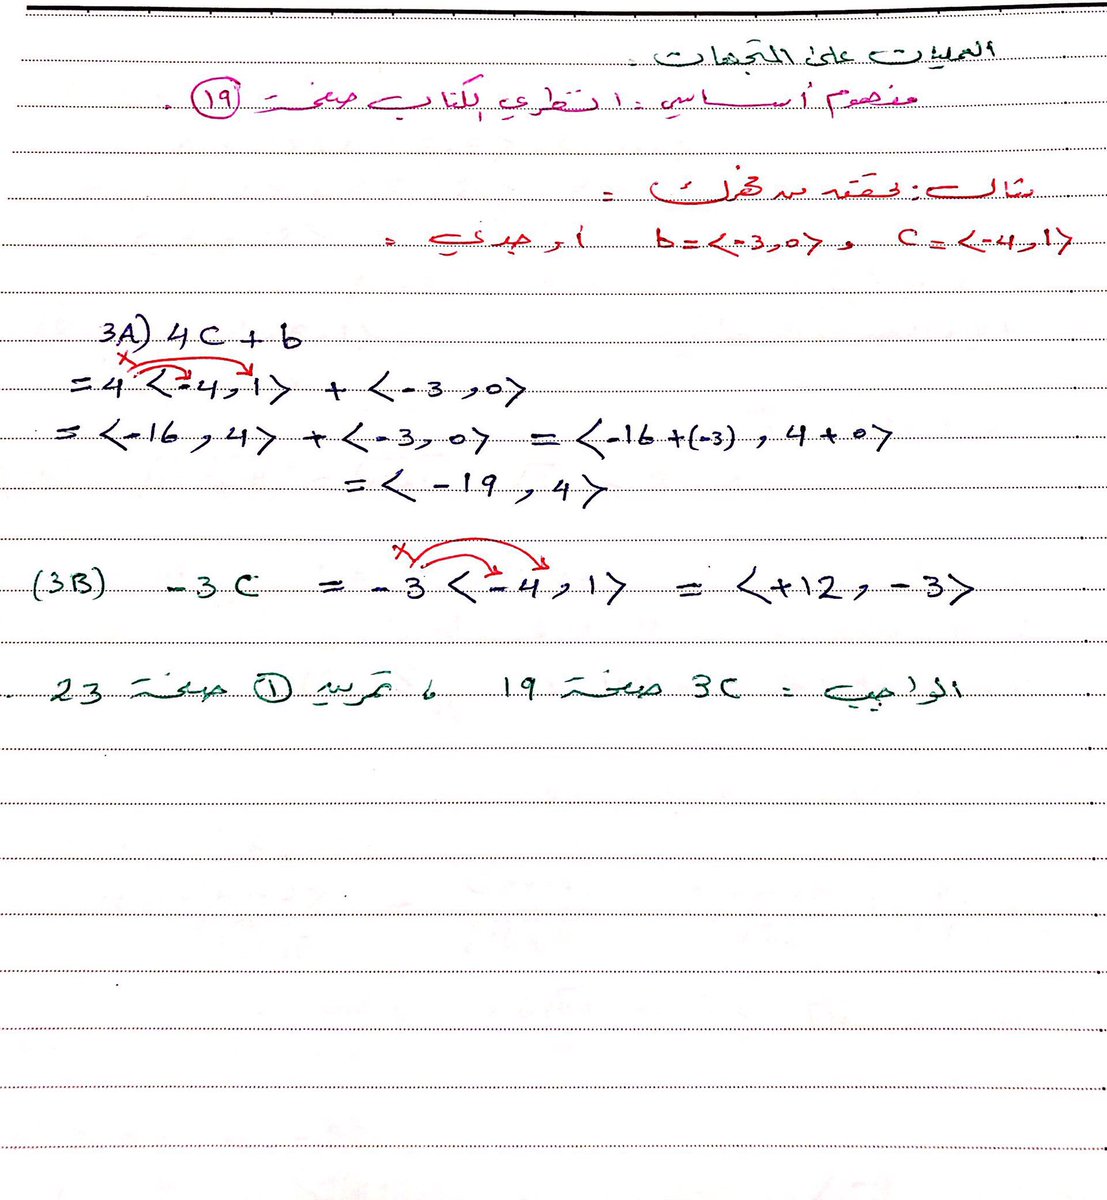 العمليات على المتجهات :
مفهوم أساسي : انظري الكتاب صفحة (١٩) .
مثال : تحققي من فهمك :
c = <-4, 1> , b = <-3, 0> أوجدي :
3A) 4C + b
= 4 <-4, 1> + <-3, 0>
= <-16, 4> + <-3, 0> = <-16 + (-3), 4 + 0>
= <-19, 4>
(3B) -3C = -3 <-4, 1> = <+12, -3>
الواجب : 3C صفحة 19 ، تمرين (1) صفحة 23 .